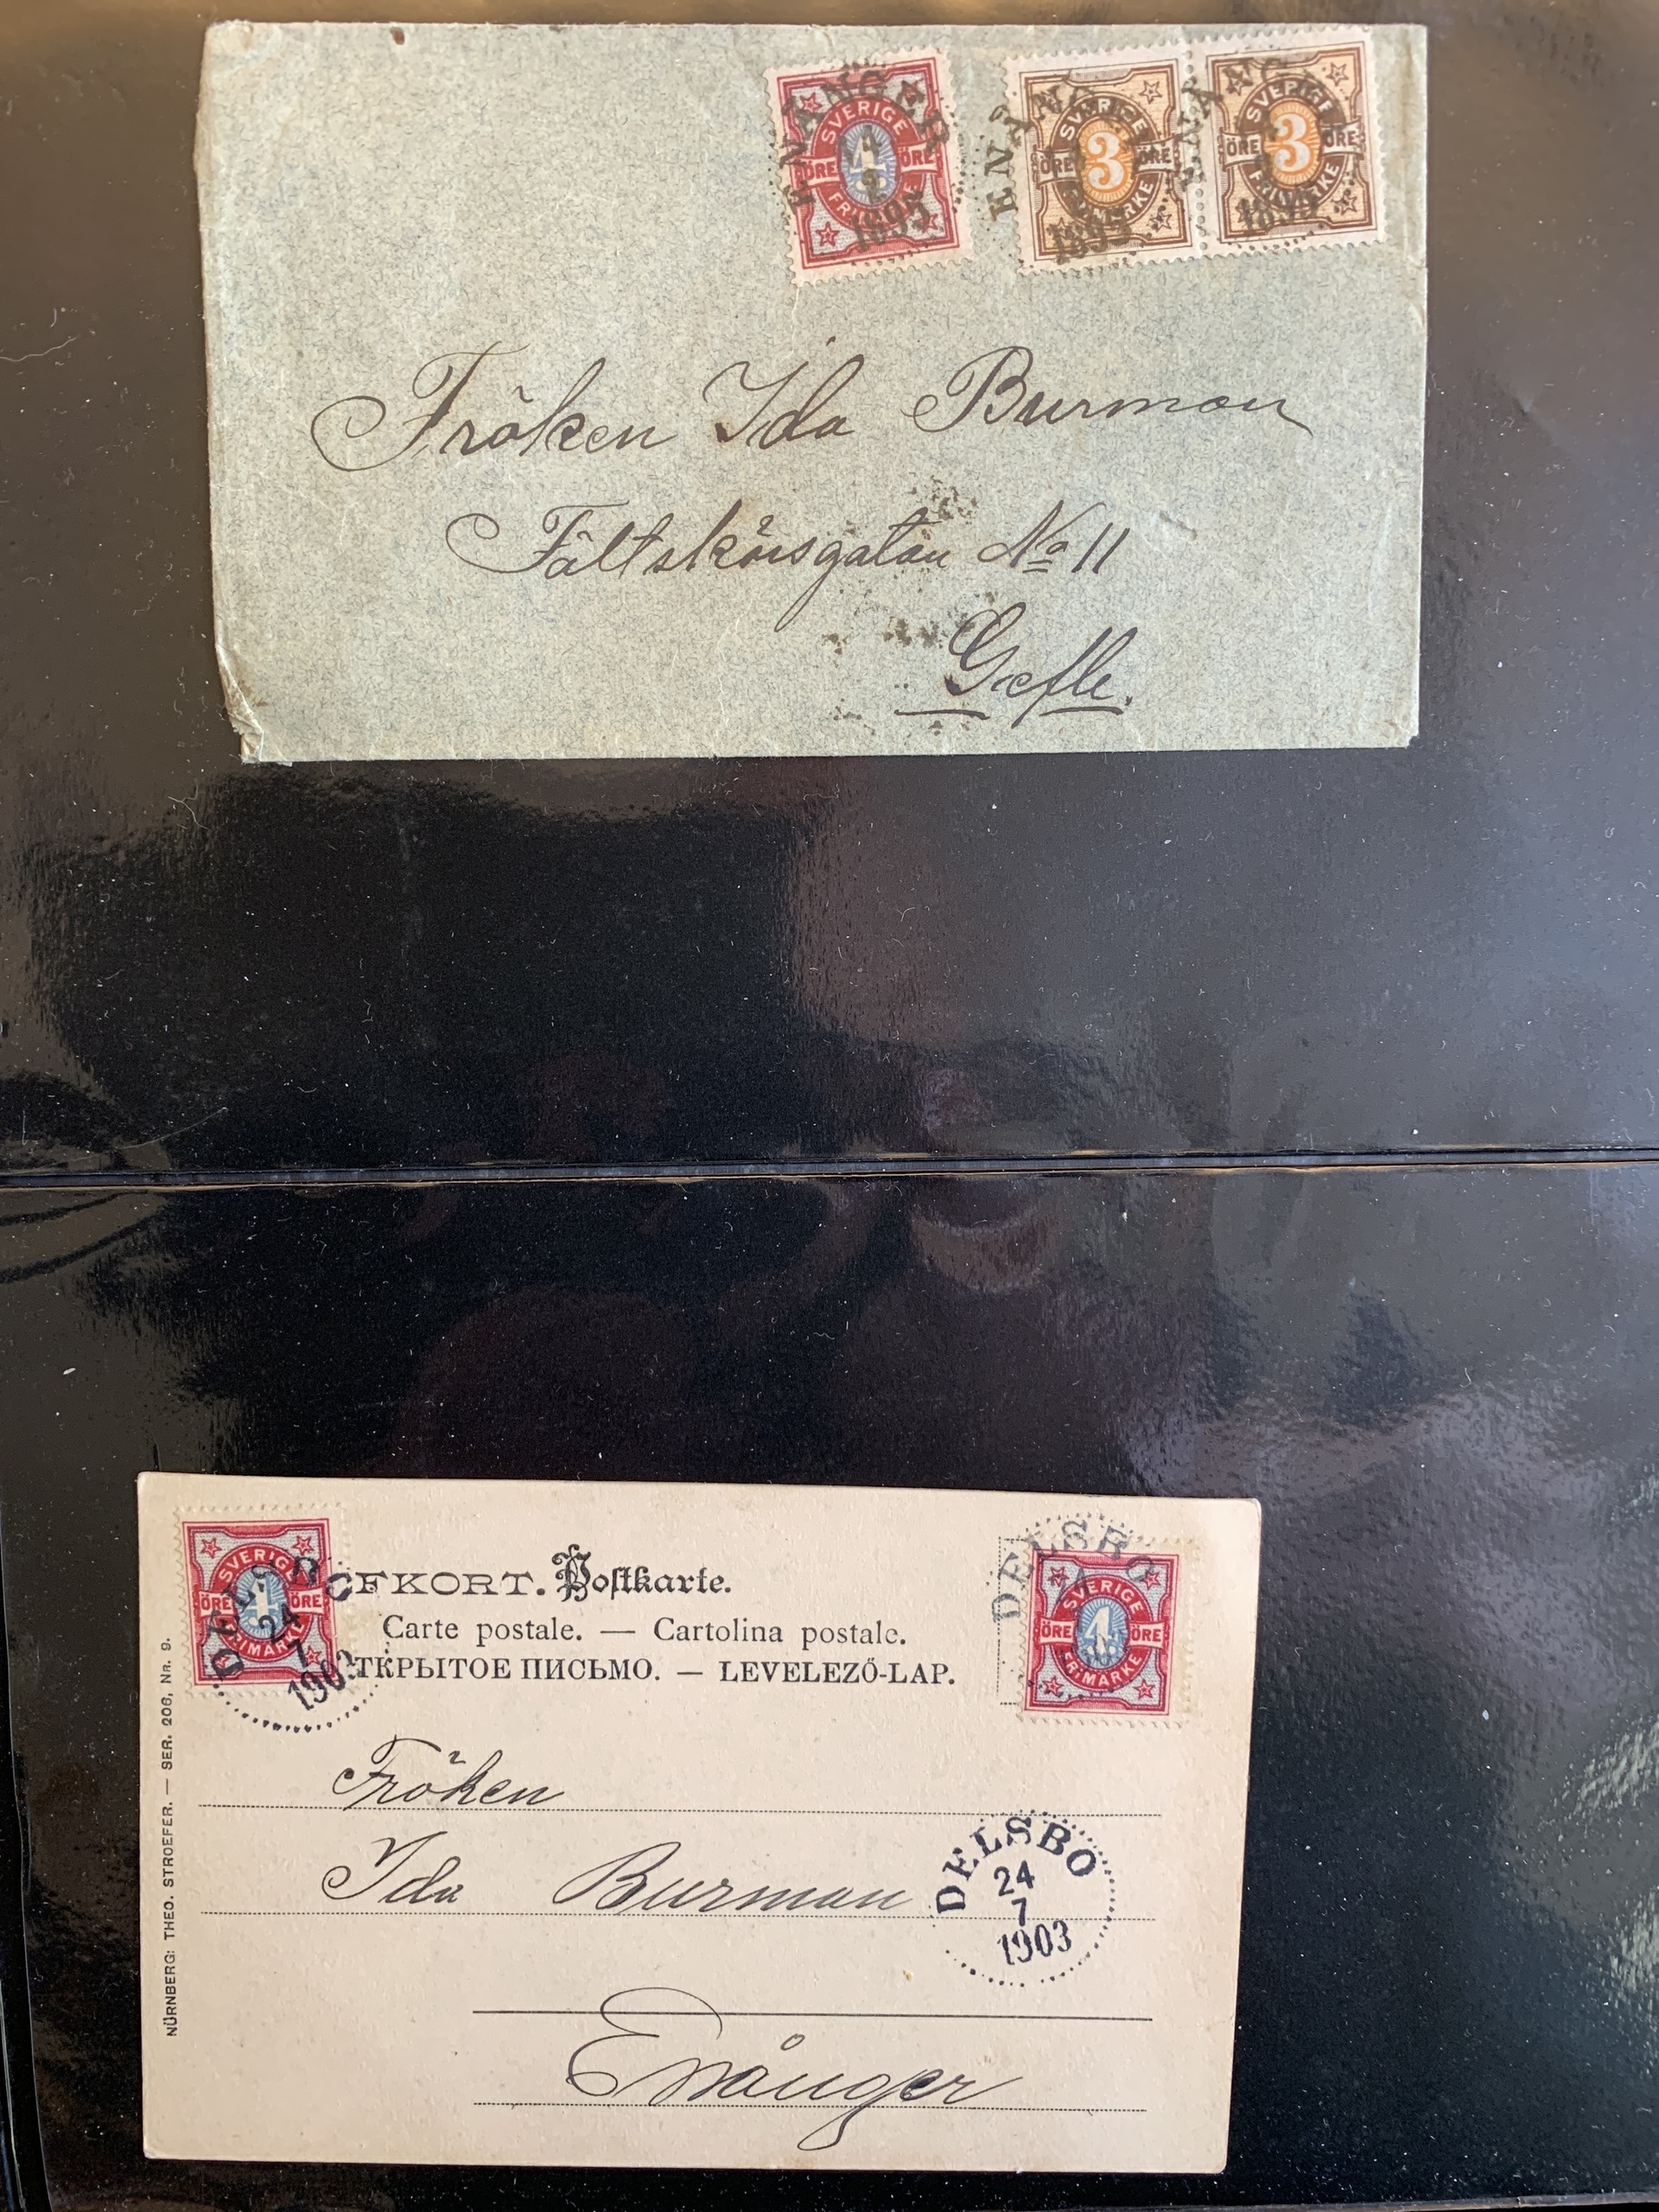 ENÅNGER
SVERIGE
4
ÖRE ÖRE
1895
SVERIGE
3
ÖRE ÖRE
FRIMÄRKE
1895
SVERIGE
3
ÖRE ÖRE
FRIMÄRKE
1895
Fröken Ida Burman
Fältskärsgatan No 11
Gefle.
SVERIGE
4
ÖRE ÖRE
FRIMÄRKE
24
7
1903
FKORT. Postkarte.
Carte postale. — Cartolina postale.
ТКРЫТОЕ ПИСЬМО. — LEVELEZŐ-LAP.
DELSBO
SVERIGE
4
ÖRE ÖRE
FRIMÄRKE
NÜRNBERG: THEO. STROEFER. — SER. 206, Nr. 9.
Fröken
Ida Burman
DELSBO
24
7
1903
Enånger